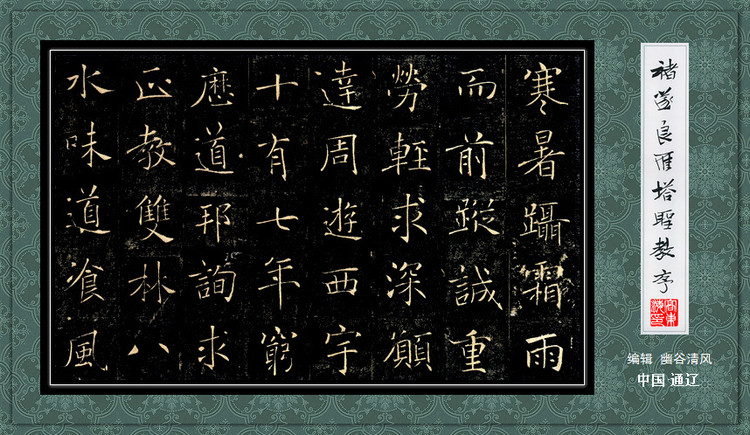 寒暑躡霜雨
而前蹤誠重
勞輕求深願
達周遊西宇
十有七年窮
歷道邦詢求
正教雙林八
水味道飡風
褚遂良雁塔聖教序
编辑 幽谷清风
中国·通辽